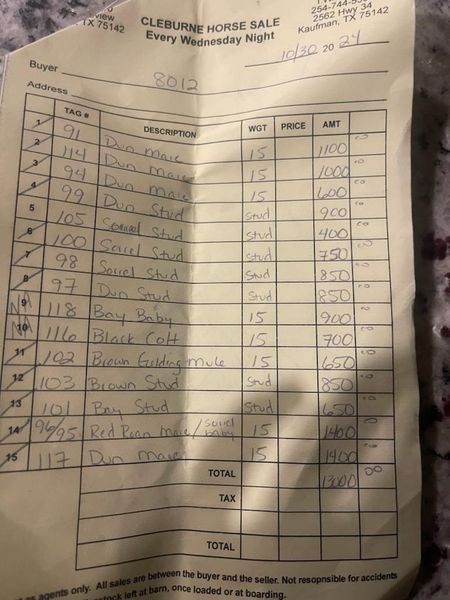 view
TX 75142
CLEBURNE HORSE SALE
Every Wednesday Night
254-744-
2562 Hwy 34
Kaufman, TX 75142
10/30 20 24
Buyer 8012
Address
TAG # DESCRIPTION WGT PRICE AMT
1 91 Dun Mare 15 1100 00
2 114 Dun Mare 15 1000 00
3 94 Dun Mare 15 600 00
4 99 Dun Stud Stud 900 00
5 105 Sorrel Stud Stud 400 00
6 100 Sorrel Stud Stud 750 00
7 98 Sorrel Stud Stud 850 00
8 97 Dun Stud Stud 850 00
9 118 Bay Baby 15 900 00
10 116 Black Colt 15 700 00
11 102 Brown Gelding mule 15 650 00
12 103 Brown Stud Stud 850 00
13 101 Bay Stud Stud 650 00
14 96/95 Red Roan Mare/sorrel baby 15 1400 00
15 117 Dun Mare 15 1400 00
TOTAL 13000 00
TAX
TOTAL
as agents only. All sales are between the buyer and the seller. Not resopnsible for accidents
stock left at barn, once loaded or at boarding.